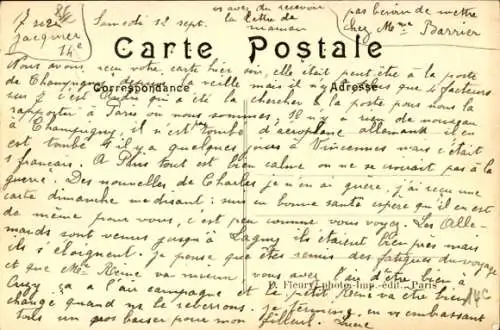 7 rue
Jacquier
14e
Samedi 12 sept.
vs avez du recevoir
la lettre de
maman
pas besoin de mettre
chez Mme Barrier
Carte Postale
Correspondance
Adresse
Nous avons reçu votre carte hier soir, elle était peut être à la poste
de Champigny depuis la veille mais il n'y a plus que 4 facteurs
c'est qui a été la chercher à la poste pour nous la
rapporter à Paris où nous sommes; Il n'y a rien de nouveau
à Champigny, il n'est tombé d'aeroplane allemand il en
est tombé 1 il y a quelques jours à Vincennes mais c'était
1 français. A Paris tout est bien calme on ne se croirait pas à la
guerre. Des nouvelles de Charles je n'en ai guère, j'ai reçu une
carte dimanche me disant: suis en bonne santé espère qu'il en est
de même pour vous, c'est peu comme vous voyez. Les Alle-
mands sont venus jusqu'à Lagny ils étaient bien près mais
ils s'éloignent. Je pense que êtes remis des fatigues du voyage
et que Mme Rème va mieux. vous avez l'air d'être bien à
Cuzy ça a l'air campagne et le petit René va être bien
changé quand ns le reverrons. je termine, en vs embrassant
tous un gros baiser pour mon filleul. Lucie
D. Fleury, photo-imp. édit., Paris
14C